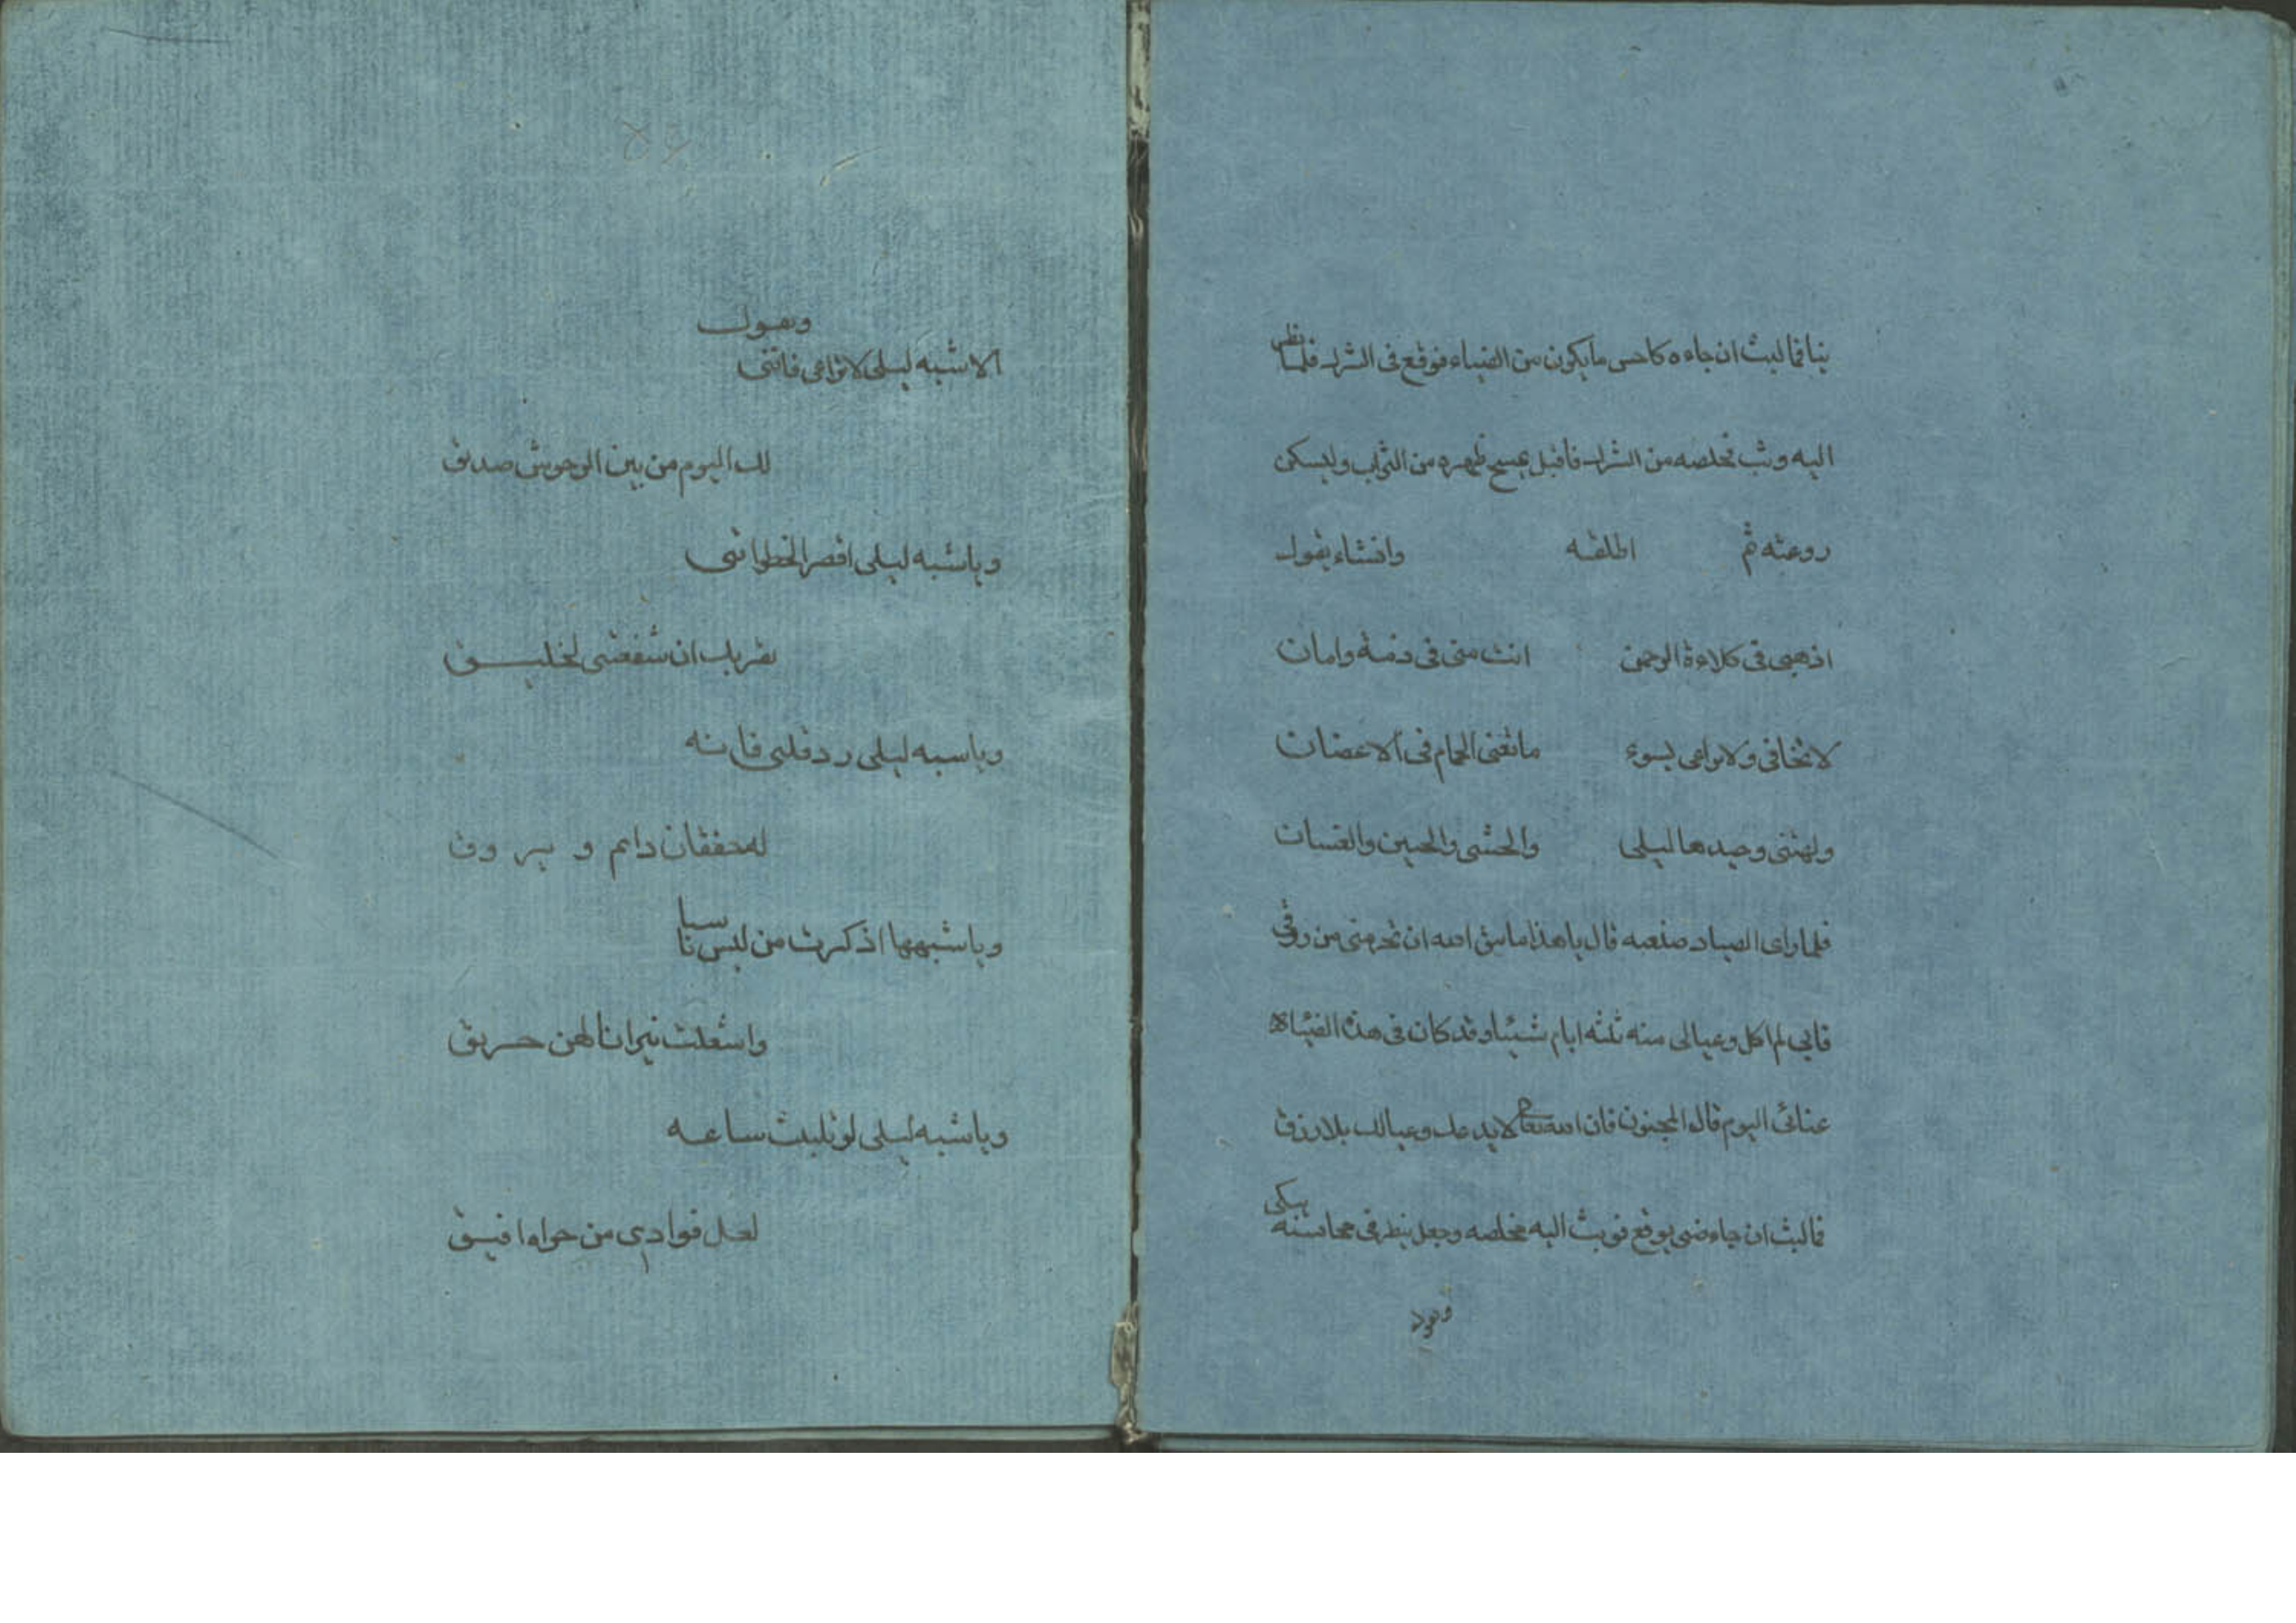 بنا فما لبث ان جاءه كاحسن مايكون من الضباء فوقع فى الشرك فلما نظر
اليه وثب فخلصه من الشرك فاقبل يمسح ظهره من التراب وليسكن
روعته ثم اطلقه وانشاء يقول
اذهبى فى كلاءة الرحمن انت منى فى ذمة وامان
لا تخافى ولا تراعى بسوء ما تغنى الحمام فى الاغصان
وجيدها ليلى والحشى والجبين والعينان
فلما راى الصياد صنعه قال ياهذا الله ان تحرمنى من رزقى
فانى لم اكل وعيالى منه ثلثه ايام شيئا وقد كان فى هذا الضباء
عنائى اليوم قال المجنون فان الله تعالى لا يدعك وعيالك بلا رزق
فما لبث ان جاء ضبى يوقع فوثب اليه فخلصه وجعل ينظر فى محاسنه يبكى
ويقول
٥٤
ويقول
الا شبه ليلى لا تراعى فاننى
لك اليوم من بين الوحوش صديق
ويا شبه ليلى اقصر الخطو اننى
بقربك ان لخليق
ويا شبه ليلى رد قلبى فانه
له خفقان دايم و بروق
ويا شبهها اذكرت من ليس ناسيا
واشعلت نيرانا لهن حريق
ويا شبه ليلى لو تلبث ساعه
لعل فوادى من جواه افيق